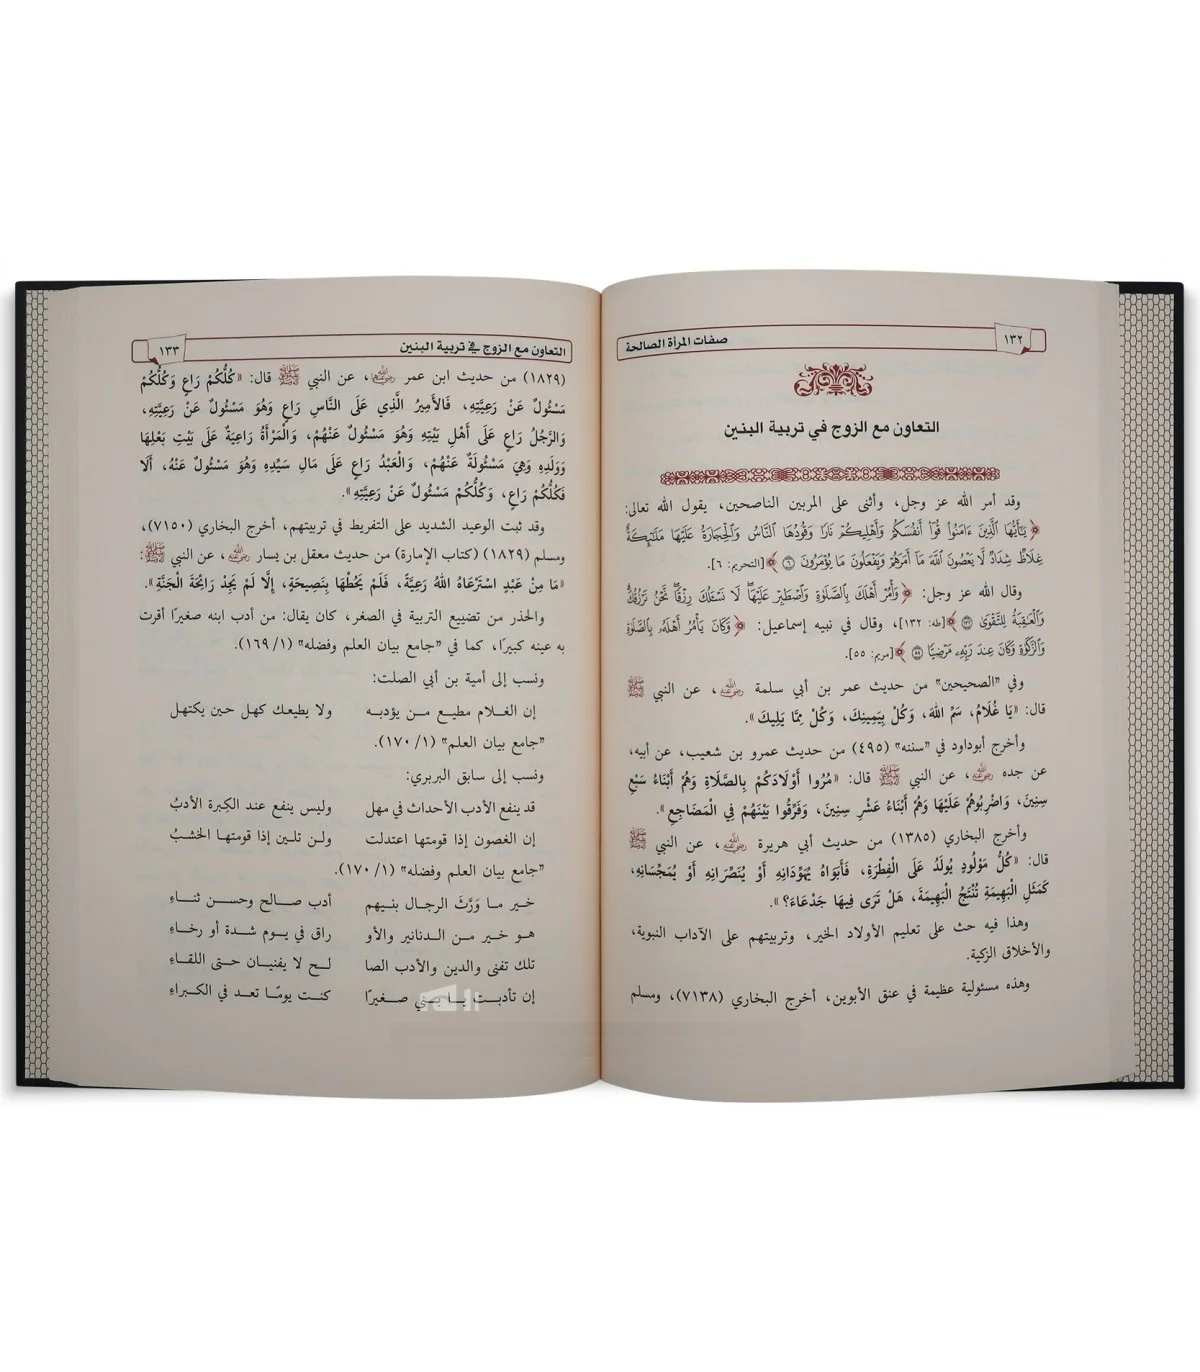 ١٣٢
صفات المرأة الصالحة
التعاون مع الزوج في تربية البنين
وقد أمر الله عز وجل، وأثنى على المربين الناصحين، يقول الله تعالى:
﴿يَٰٓأَيُّهَا ٱلَّذِينَ ءَامَنُوا۟ قُوٓا۟ أَنفُسَكُمْ وَأَهْلِيكُمْ نَارًا وَقُودُهَا ٱلنَّاسُ وَٱلْحِجَارَةُ عَلَيْهَا مَلَٰٓئِكَةٌ
غِلَاظٌ شِدَادٌ لَّا يَعْصُونَ ٱللَّهَ مَآ أَمَرَهُمْ وَيَفْعَلُونَ مَا يُؤْمَرُونَ ٦﴾ [التحريم: ٦].
وقال الله عز وجل: ﴿وَأْمُرْ أَهْلَكَ بِٱلصَّلَوٰةِ وَٱصْطَبِرْ عَلَيْهَا لَا نَسْـَٔلُكَ رِزْقًا نَّحْنُ نَرْزُقُكَ
وَٱلْعَٰقِبَةُ لِلتَّقْوَىٰ ١٣٢﴾ [طه: ١٣٢]، وقال في نبيه إسماعيل: ﴿وَكَانَ يَأْمُرُ أَهْلَهُۥ بِٱلصَّلَوٰةِ
وَٱلزَّكَوٰةِ وَكَانَ عِندَ رَبِّهِۦ مَرْضِيًّا ٥٥﴾ [مريم: ٥٥].
وفي "الصحيحين" من حديث عمر بن أبي سلمة رضي الله عنه، عن النبي ﷺ
قال: «يَا غُلَامُ، سَمِّ اللهَ، وَكُلْ بِيَمِينِكَ، وَكُلْ مِمَّا يَلِيكَ».
وأخرج أبوداود في "سننه" (٤٩٥) من حديث عمرو بن شعيب، عن أبيه،
عن جده رضي الله عنه، عن النبي ﷺ قال: «مُرُوا أَوْلَادَكُمْ بِالصَّلَاةِ وَهُمْ أَبْنَاءُ سَبْعِ
سِنِينَ، وَاضْرِبُوهُمْ عَلَيْهَا وَهُمْ أَبْنَاءُ عَشْرِ سِنِينَ، وَفَرِّقُوا بَيْنَهُمْ فِي الْمَضَاجِعِ».
وأخرج البخاري (١٣٨٥) من حديث أبي هريرة رضي الله عنه، عن النبي ﷺ
قال: «كُلُّ مَوْلُودٍ يُولَدُ عَلَى الْفِطْرَةِ، فَأَبَوَاهُ يُهَوِّدَانِهِ أَوْ يُنَصِّرَانِهِ أَوْ يُمَجِّسَانِهِ،
كَمَثَلِ الْبَهِيمَةِ تُنْتَجُ الْبَهِيمَةَ، هَلْ تَرَى فِيهَا جَدْعَاءَ؟».
وهذا فيه حث على تعليم الأولاد الخير، وتربيتهم على الآداب النبوية،
والأخلاق الزكية.
وهذه مسئولية عظيمة في عنق الأبوين، أخرج البخاري (٧١٣٨)، ومسلم
التعاون مع الزوج في تربية البنين
١٣٣
(١٨٢٩) من حديث ابن عمر رضي الله عنه، عن النبي ﷺ قال: «كُلُّكُمْ رَاعٍ وَكُلُّكُمْ
مَسْئُولٌ عَنْ رَعِيَّتِهِ، فَالأَمِيرُ الَّذِي عَلَى النَّاسِ رَاعٍ وَهُوَ مَسْئُولٌ عَنْ رَعِيَّتِهِ،
وَالرَّجُلُ رَاعٍ عَلَى أَهْلِ بَيْتِهِ وَهُوَ مَسْئُولٌ عَنْهُمْ، وَالْمَرْأَةُ رَاعِيَةٌ عَلَى بَيْتِ بَعْلِهَا
وَوَلَدِهِ وَهِيَ مَسْئُولَةٌ عَنْهُمْ، وَالْعَبْدُ رَاعٍ عَلَى مَالِ سَيِّدِهِ وَهُوَ مَسْئُولٌ عَنْهُ، أَلَا
فَكُلُّكُمْ رَاعٍ، وَكُلُّكُمْ مَسْئُولٌ عَنْ رَعِيَّتِهِ».
وقد ثبت الوعيد الشديد على التفريط في تربيتهم، أخرج البخاري (٧١٥٠)،
ومسلم (١٨٢٩) (كتاب الإمارة) من حديث معقل بن يسار رضي الله عنه، عن النبي ﷺ:
«مَا مِنْ عَبْدٍ اسْتَرْعَاهُ اللهُ رَعِيَّةً، فَلَمْ يَحُطْهَا بِنَصِيحَةٍ، إِلَّا لَمْ يَجِدْ رَائِحَةَ الْجَنَّةِ».
والحذر من تضييع التربية في الصغر، كان يقال: من أدب ابنه صغيرًا أقرت
به عينه كبيرًا، كما في "جامع بيان العلم وفضله" (١/ ١٦٩).
ونسب إلى أمية بن أبي الصلت:
إن الغلام مطيع من يؤدبه ولا يطيعك كهل حين يكتهل
"جامع بيان العلم" (١/ ١٧٠).
ونسب إلى سابق البربري:
قد ينفع الأدب الأحداث في مهل وليس ينفع عند الكبرة الأدبُ
إن الغصون إذا قومتها اعتدلت ولن تلين إذا قومتها الخشبُ
"جامع بيان العلم وفضله" (١/ ١٧٠).
خير ما وَرَّثَ الرجال بنيهم أدب صالح وحسن ثناء
هو خير من الدنانير والأو راق في يوم شدة أو رخاءِ
تلك تفنى والدين والأدب الصا لح لا يفنيان حتى اللقاءِ
إن تأدبت يا بني صغيرًا كنت يومًا تعد في الكبراءِ